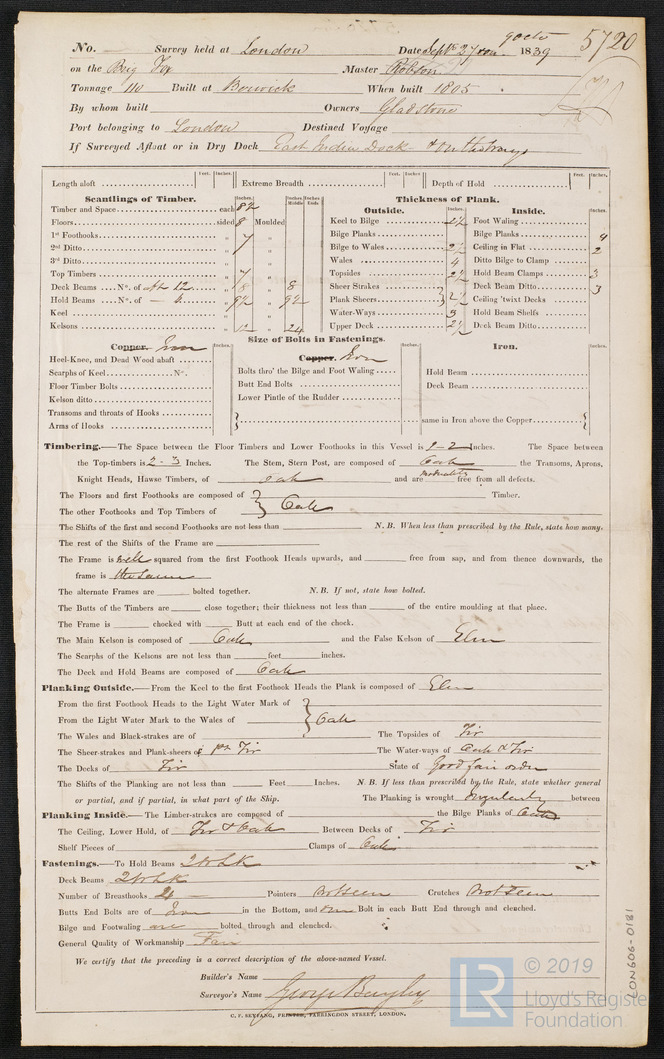 9 Octo 5720
No. — Survey held at London Date Sept 27 1839
on the Brig Fox Master Robson
Tonnage 110 Built at Berwick When built 1805
By whom built Owners Gladstone
Port belonging to London Destined Voyage
If Surveyed Afloat or in Dry Dock East India Dock & on the
Length aloft Feet. Inches. Extreme Breadth Feet. Inches. Depth of Hold Feet. Inches.
Scantlings of Timber. Inches. Inches. Middle Inches. Ends
Timber and Space each 8½
Floors sided 8 Moulded
1st Foothooks „ „
2nd Ditto „ 7 „
3rd Ditto „ „
Top Timbers „ 7 „
Deck Beams No. of aft 12 „ 8 „ 8
Hold Beams No. of — 6 „ 9½ „ 9½
Keel „ „
Kelsons „ 12 „ 24
Thickness of Plank.
Outside. Inches. Inside. Inches.
Keel to Bilge 2½ Foot Waling
Bilge Planks Bilge Planks 4
Bilge to Wales 2½ Ceiling in Flat 2
Wales 4 Ditto Bilge to Clamp
Topsides 2½ Hold Beam Clamps 3
Sheer Strakes Deck Beam Ditto 3
Plank Sheers 2½ Ceiling 'twixt Decks
Water-Ways 3 Hold Beam Shelfs
Upper Deck 2½ Deck Beam Ditto
Size of Bolts in Fastenings.
Copper. Iron Inches. Copper. Iron Inches. Iron. Inches.
Heel-Knee, and Dead Wood abaft
Scarphs of Keel No.
Floor Timber Bolts
Kelson ditto
Transoms and throats of Hooks
Arms of Hooks
Bolts thro' the Bilge and Foot Waling
Butt End Bolts
Lower Pintle of the Rudder
Hold Beam
Deck Beam
same in Iron above the Copper
Timbering.—The Space between the Floor Timbers and Lower Foothooks in this Vessel is 1-2 Inches. The Space between
the Top-timbers is 2-3 Inches. The Stem, Stern Post, are composed of Oak the Transoms, Aprons,
Knight Heads, Hawse Timbers, of oak and are moderately free from all defects.
The Floors and first Foothooks are composed of Timber.
The other Foothooks and Top Timbers of Oak
The Shifts of the first and second Foothooks are not less than N.B. When less than prescribed by the Rule, state how many.
The rest of the Shifts of the Frame are
The Frame is well squared from the first Foothook Heads upwards, and free from sap, and from thence downwards, the
frame is the Same
The alternate Frames are bolted together. N.B. If not, state how bolted.
The Butts of the Timbers are close together; their thickness not less than of the entire moulding at that place.
The Frame is chocked with Butt at each end of the chock.
The Main Kelson is composed of Oak and the False Kelson of Elm
The Scarphs of the Kelsons are not less than feet inches.
The Deck and Hold Beams are composed of Oak
Planking Outside.—From the Keel to the first Foothook Heads the Plank is composed of Elm
From the first Foothook Heads to the Light Water Mark of
From the Light Water Mark to the Wales of Oak
The Wales and Black-strakes are of The Topsides of Fir
The Sheer-strakes and Plank-sheers of Fir The Water-ways of Oak & Fir
The Decks of Fir State of Good fair order
The Shifts of the Planking are not less than Feet Inches. N.B. If less than prescribed by the Rule, state whether general
or partial, and if partial, in what part of the Ship. The Planking is wrought Irregularly between
Planking Inside.—The Limber-strakes are composed of the Bilge Planks of Oak
The Ceiling, Lower Hold, of Fir & Oak Between Decks of Fir
Shelf Pieces of Clamps of Oak
Fastenings.—To Hold Beams 2 W L K
Deck Beams 2 W L K
Number of Breasthooks 4 Pointers not Seen Crutches Not Seen
Butts End Bolts are of Iron in the Bottom, and one Bolt in each Butt End through and clenched.
Bilge and Footwaling are bolted through and clenched.
General Quality of Workmanship Fair
We certify that the preceding is a correct description of the above-named Vessel.
Builder's Name
Surveyor's Name George Bayley
C. F. SEYFANG, PRINTER, FARRINGDON STREET, LONDON.
LON606-0181
LR © 2019
Lloyd's Registe
Foundation